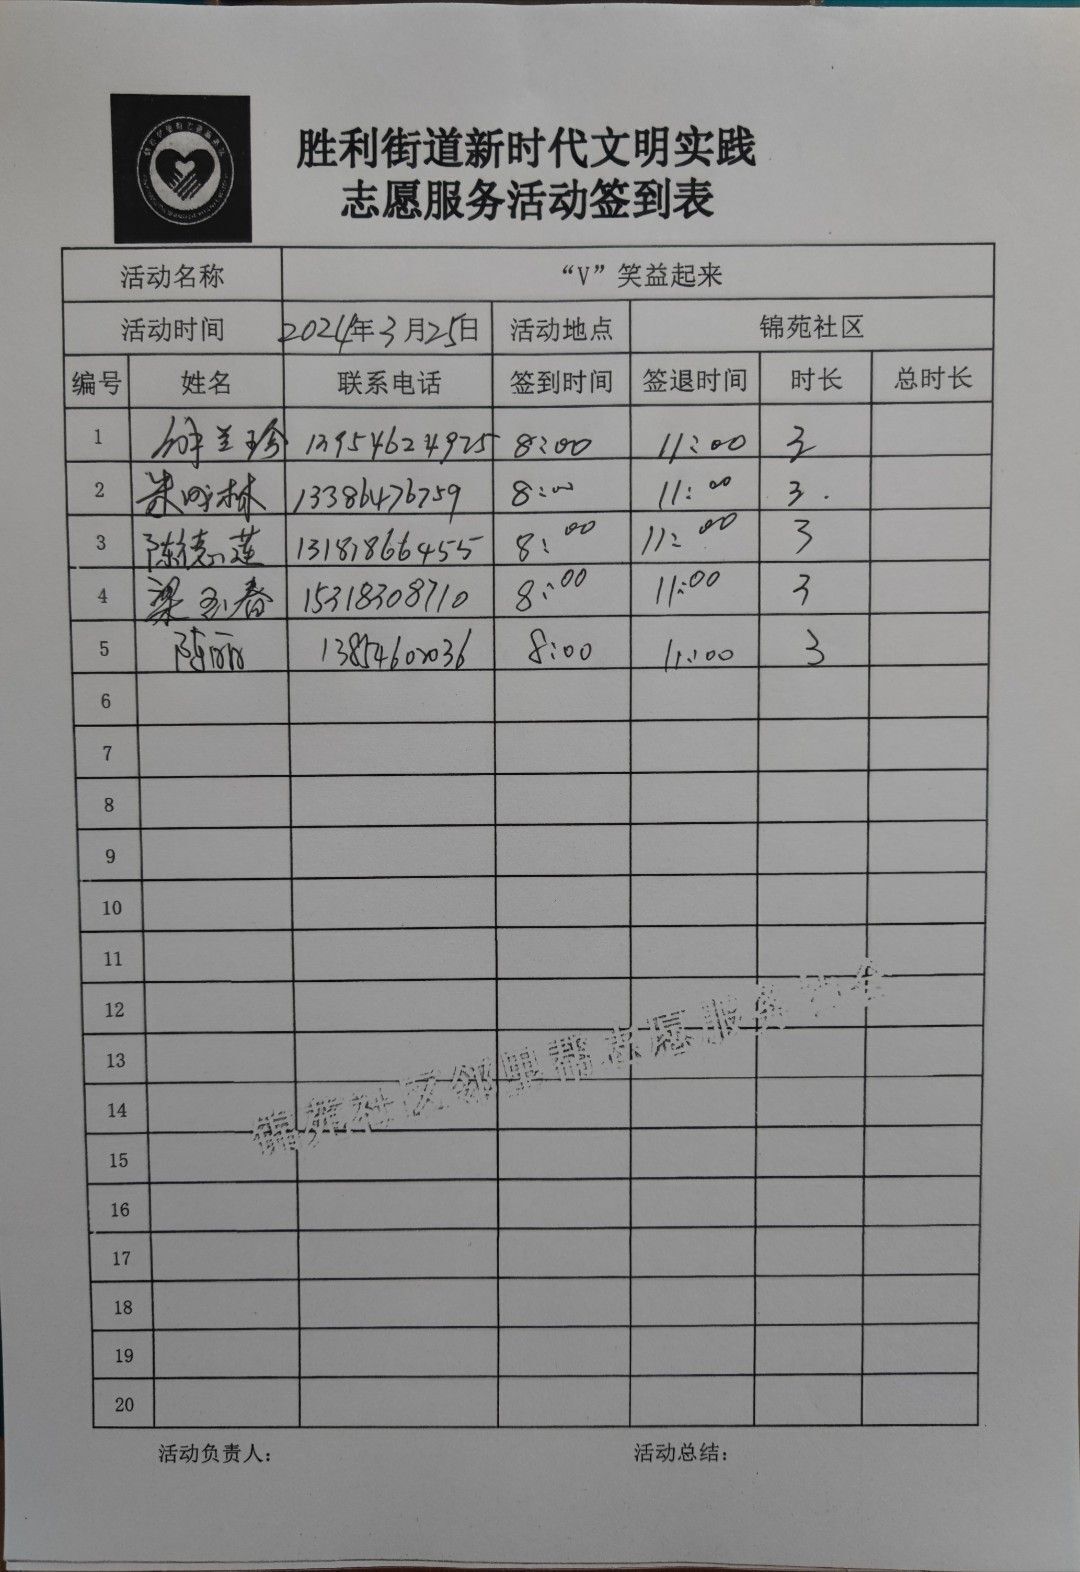 胜利街道新时代文明实践
志愿服务活动签到表
活动名称 “V”笑益起来
活动时间 2024年3月25日 活动地点 锦苑社区
编号 姓名 联系电话 签到时间 签退时间 时长 总时长
1 兰珍 13954624925 8:00 11:00 3
2 林 13386476759 8:00 11:00 3.
3 陈德莲 13181866455 8:00 11:00 3
4 梁玉春 15318308710 8:00 11:00 3
5 陈丽 13854602036 8:00 11:00 3
6
7
8
9
10
11
12
13
14
15
16
17
18
19
20
锦苑社区邻里帮志愿服务协会
活动负责人: 活动总结: